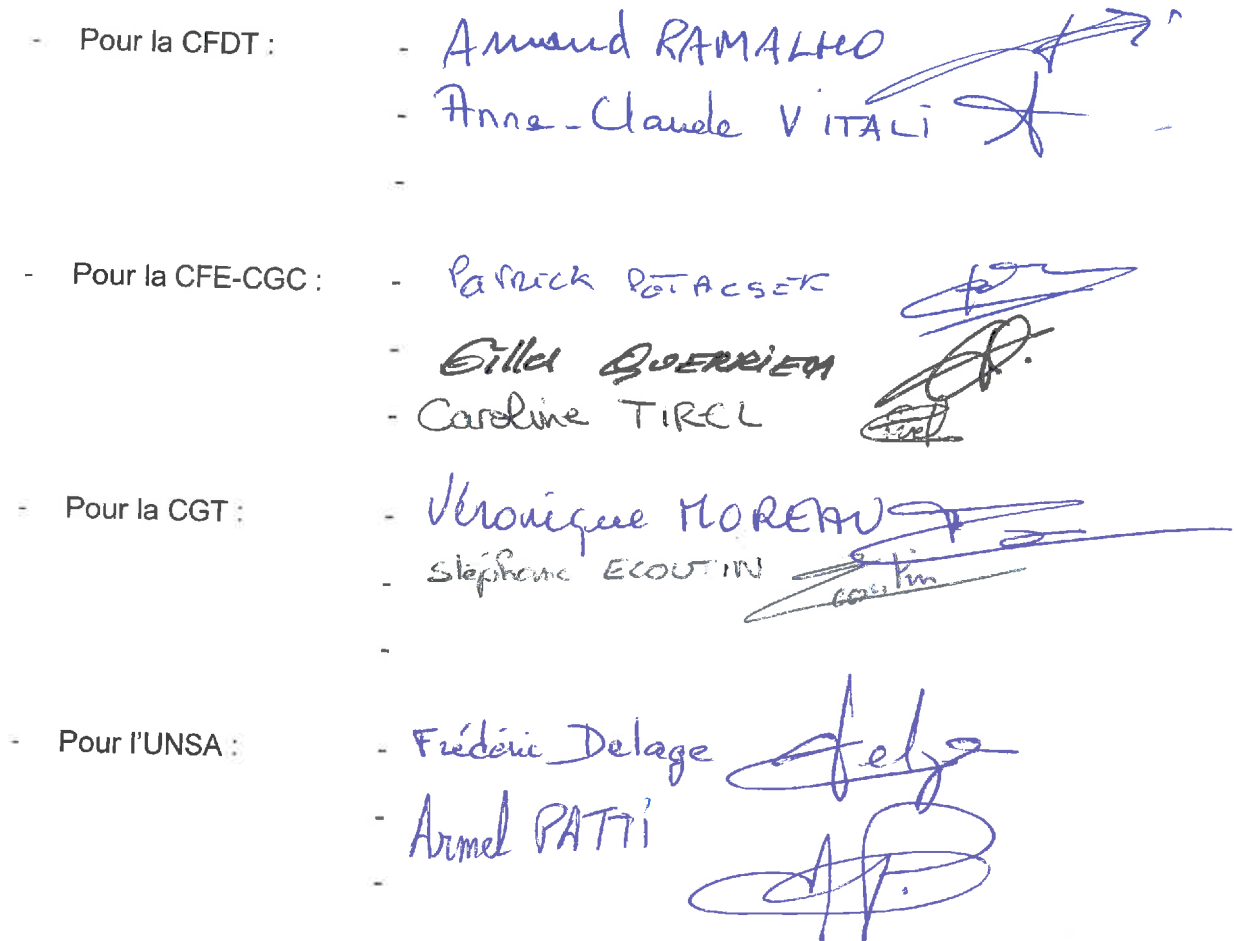 - Pour la CFDT : - Armand RAMALHO
- Anne-Claude VITALI
-
- Pour la CFE-CGC : - Patrick POTACSEK
- Gilles QUERRIEN
- Caroline TIREL Tirel
- Pour la CGT : - Véronique MOREAU
- Stéphane ECOUTIN coutin
-
- Pour l'UNSA : - Frédéric Delage
- Armel PATTI
-